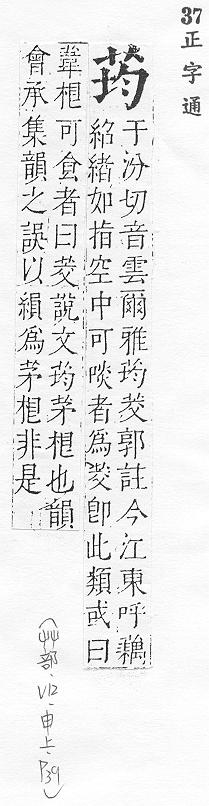 37
正字通
荺
于汾切音雲爾雅荺茭郭註今江東呼藕
紹緒如指空中可啖者為茭卽此類或曰
葦根可食者曰茭說文荺茅根也韻
會承集韻之誤以縜為茅根非是
(艸部、V12、申上、P39)